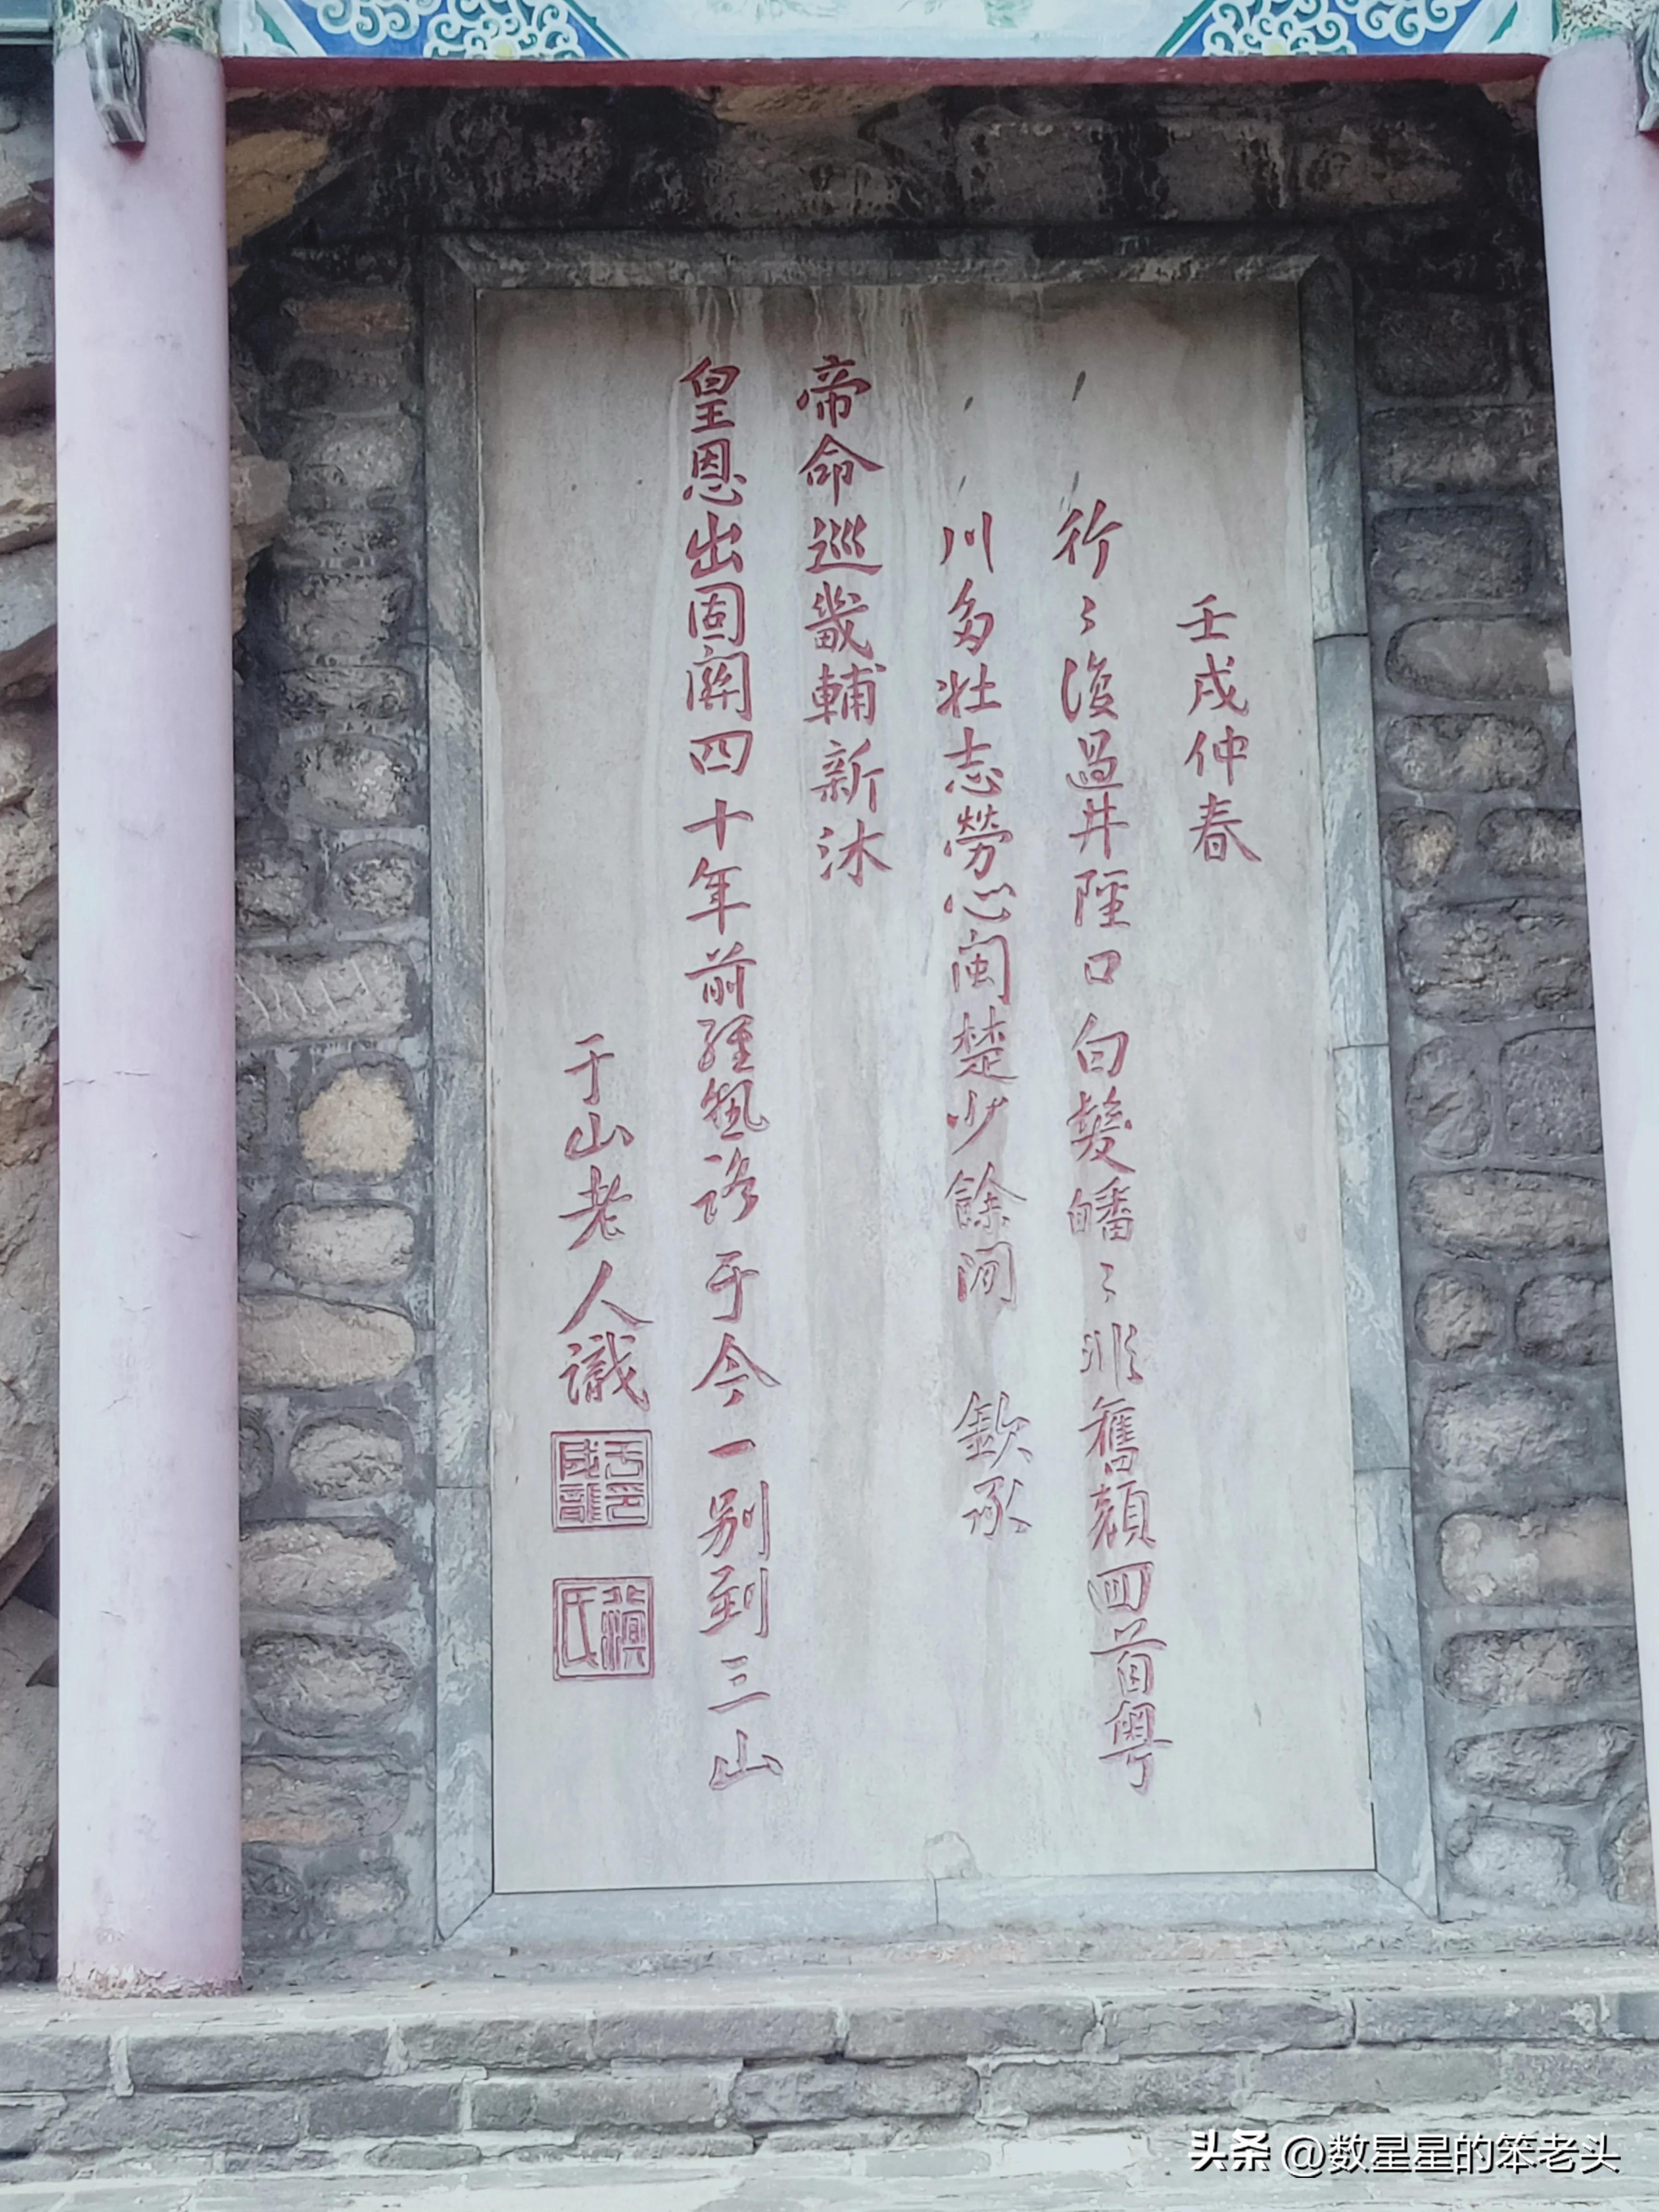 壬戌仲春
行〻復過井陘口白髮皤〻非舊顏回首粵
川多壯志勞心閩楚少餘閒 欽承
帝命巡畿輔新沐
皇恩出固關四十年前經熟路于今一別到三山
于山老人識
于成龍印
北溟氏
头条 @数星星的笨老头